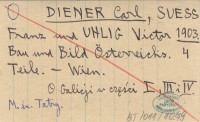 DIENER Carl, SUESS
Franz und UHLIG Victor 1903.
Bau und Bild Österreichs. 4
Teile. – Wien.
O Galicji w części I, III i IV
M. in. Tatry.